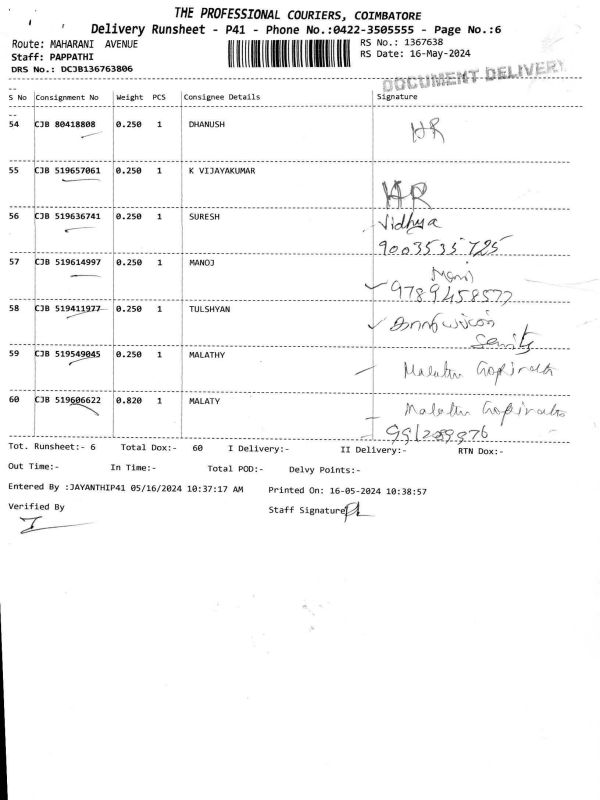 THE PROFESSIONAL COURIERS, COIMBATORE
Delivery Runsheet - P41 - Phone No.:0422-3505555 - Page No.:6
Route: MAHARANI AVENUE
RS No.: 1367638
Staff: PAPPATHI
RS Date: 16-May-2024
DRS No.: DCJB136763806
DOCUMENT DELIVERY
S No Consignment No Weight PCS Consignee Details Signature
54 CJB 80418808 0.250 1 DHANUSH HR
55 CJB 519657061 0.250 1 K VIJAYAKUMAR HR
56 CJB 519636741 0.250 1 SURESH Vidhya
9003535725
57 CJB 519614997 0.250 1 MANOJ Mani
9789458577
58 CJB 519411977 0.250 1 TULSHYAN
59 CJB 519549045 0.250 1 MALATHY
60 CJB 519606622 0.820 1 MALATY
Tot. Runsheet:- 6 Total Dox:- 60 I Delivery:- II Delivery:- RTN Dox:-
Out Time:- In Time:- Total POD:- Delvy Points:-
Entered By :JAYANTHIP41 05/16/2024 10:37:17 AM Printed On: 16-05-2024 10:38:57
Verified By Staff Signature